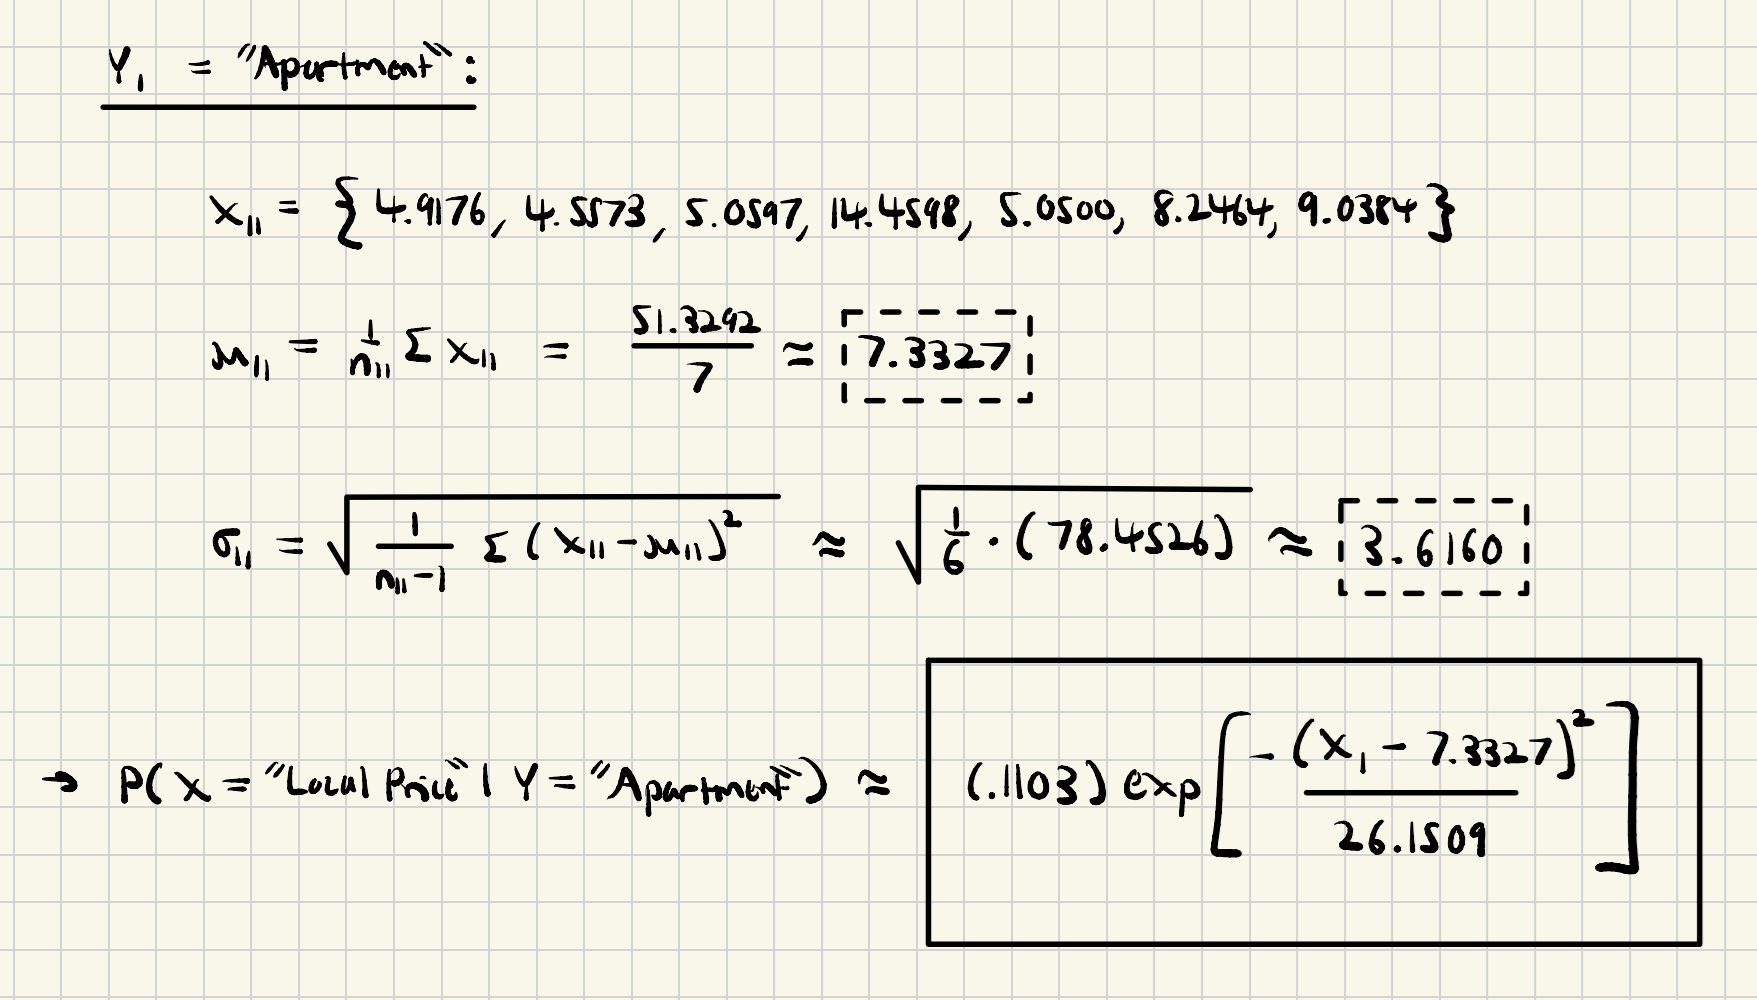 Y₁ = "Apartment":
x₁₁ = { 4.9176, 4.5573, 5.0597, 14.4598, 5.0500, 8.2464, 9.0384 }
μ₁₁ = 1/n₁₁ Σ x₁₁ = 51.3292/7 ≈ 7.3327
σ₁₁ = √(1/(n₁₁-1) Σ (x₁₁-μ₁₁)²) ≈ √(1/6 · (78.4526)) ≈ 3.6160
→ P( X = "Local Price" | Y = "Apartment") ≈ (.1103) exp[ -(x₁ - 7.3327)² / 26.1509 ]